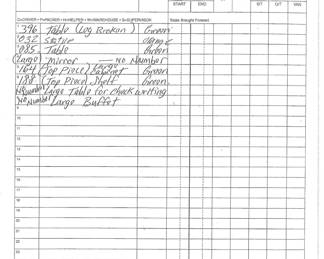 START END S/T O/T D/W
C=DRIVER P=PACKER H=HELPER W=WAREHOUSE S=SUPERVISOR Totals Brought Forward
396 Table (Leg Broken) Green
032 Statue
085 Table Green
(Large) Mirror — No Number
164 (Top Piece) Large Cabinet Green
188 (Top Piece) Shelf Green
No Number Large Table for Check writing
No Number Large Buffet
9
10
11
12
13
14
15
16
17
18
19
20